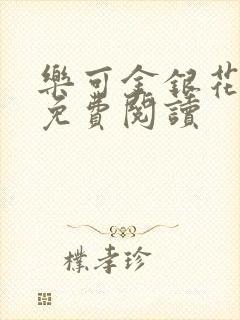 樂可金銀花
免費閱讀
樸孝珍